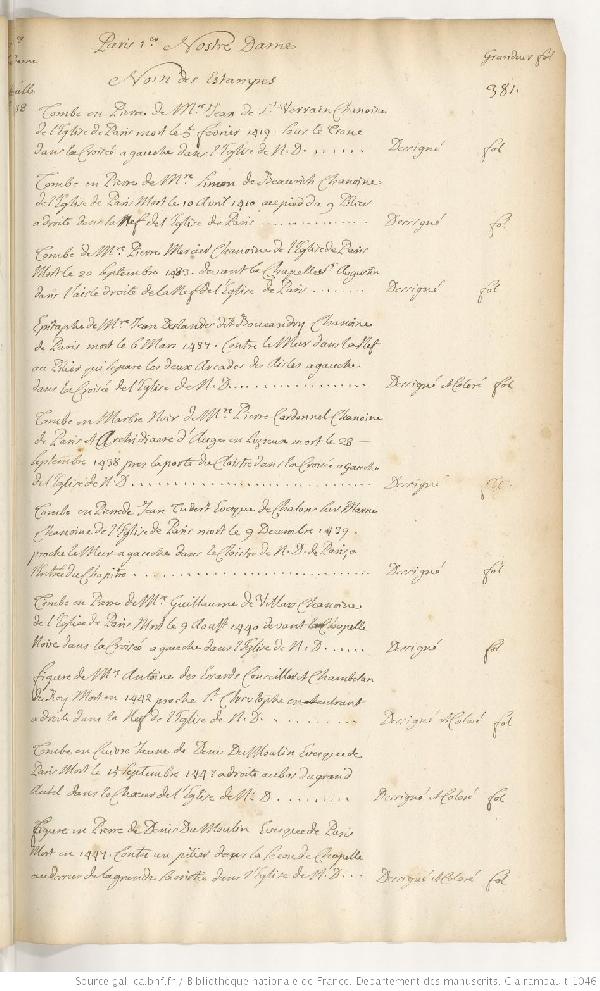 Paris 1er Nostre Dame
Grandeur fol
Nom des Estampes
381.
Tombe en Pierre de Mre Jean de St Verrain Chanoine
de l'Eglise de Paris mort le 5 fevrier 1419. Sous le Crane
dans la Croisée a gauche dans l'Eglise de N.D. Dessigné fol
Tombe en Pierre de Mre Simon de Chanoine
de l'Eglise de Paris Mort le 10 Avril 1410 au pied du 9 Pilier
a droite dans la Nef de l'Eglise de Paris Dessigné fol
Tombe de Mre Pierre Mercier Chanoine de l'Eglise de Paris
Mort le 20 Septembre devant la Chapelle St Augustin
dans l'aisle droite de la Nef de l'Eglise de Paris Dessigné fol
Epitaphe de Mre Jean Deslandes dit Chanoine
de Paris mort le 6 Mars 1437. Contre le Mur dans la Nef
au Pilier qui separe les deux Arcades des Aisles a gauche
dans la Croisée de l'Eglise de N.D. Dessigné et Coloré fol
Tombe en Marbre Noir de Mre Pierre Cardonnel Chanoine
de Paris et Archidiacre d'Auge en Lizieux mort le 28
Septembre 1438 pres la porte du Cloistre dans la Croisée a gauche
de l'Eglise de N.D. Dessigné fol
Tombe en Pierre de Jean Tubert Evesque de Chalons sur Marne
Chanoine de l'Eglise de Paris mort le 9 Decembre 1439.
proche le Mur a gauche dans le Cloistre de N.D. de Paris
du Chapitre Dessigné fol
Tombe en Pierre de Mre Guillaume de Villars Chanoine
de l'Eglise de Paris Mort le 9 Aoust 1440 devant la Chapelle
Noire dans la Croisée a gauche dans l'Eglise de N.D. Dessigné fol
Figure de Mre Antoine des Essarts Conseiller et Chambelan
du Roy Mort en 1442 proche St Christophe en entrant
a droite dans la Nef de l'Eglise de N.D. Dessigné et Coloré fol
Tombe en Cuivre Jaune de Denis Du Moulin Evesque de
Paris Mort le 15 Septembre 1447 a droite au bas du grand
Autel dans le Choeur de l'Eglise de N.D. Dessigné et Coloré fol
Figure en Pierre de Denis Du Moulin Evesque de Paris
Mort en 1447. Contre un pilier dans la seconde Chapelle
au dessus de la grande Sacristie dans l'Eglise de N.D. Dessigné et Coloré fol
Source gallica.bnf.fr / Bibliothèque nationale de France. Département des manuscrits. Clairambault 1046